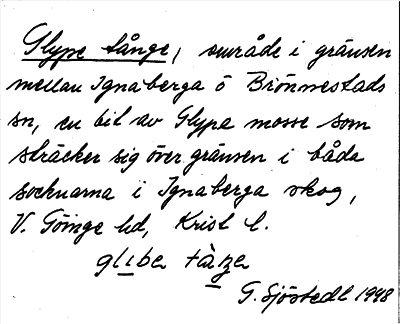 Glype tånge, område i gränsen
mellan Ignaberga o Brönnestads
sn, en bit av Glypa mosse som
sträcker sig över gränsen i båda
socknarna i Ignaberga skog,
V. Göinge hd, Krist l.
glıbe tàŋe
G. Sjöstedt 1948